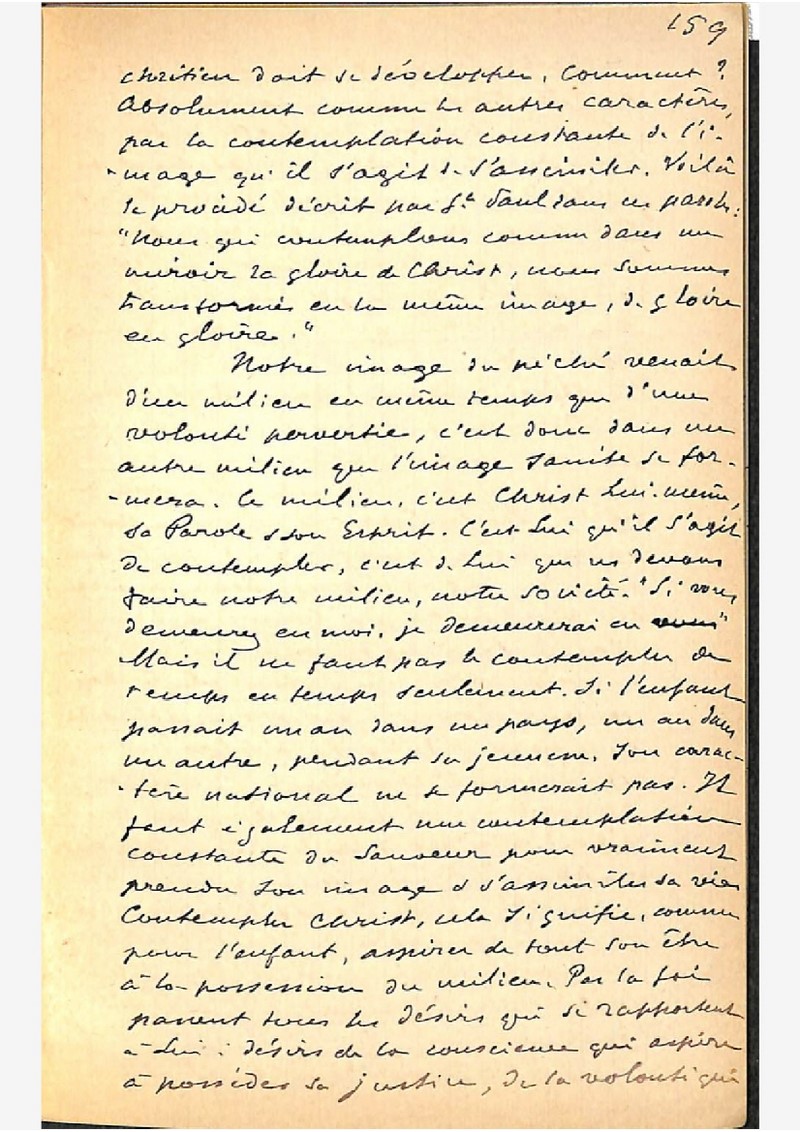 159
chrétien doit se développer. Comment ?
Absolument comme les autres caractères,
par la contemplation constante de l'i-
-mage qu'il s'agit de s'assimiler. Voilà
le procédé décrit par St Paul dans ces paroles:
"Nous qui contemplons comme dans un
miroir la gloire de Christ, nous sommes
transformés en la même image, de gloire
en gloire."
Notre image du péché venait
d'un milieu en même temps que d'une
volonté pervertie, c'est donc dans un
autre milieu que l'image sainte se for-
-mera. Ce milieu, c'est Christ Lui-même,
sa Parole & son Esprit. C'est Lui qu'il s'agit
de contempler, c'est de Lui que ns devons
faire notre milieu, notre société. "Si vous
demeurez en moi, je demeurerai en vous"
Mais il ne faut pas le contempler de
temps en temps seulement. Si l'enfant
passait un an dans un pays, un an dans
un autre, pendant sa jeunesse, son carac-
-tère national ne se formerait pas. Il
faut également une contemplation
constante du Sauveur pour vraiment
prendre son image & s'assimiler sa vie.
Contempler Christ, cela signifie, comme
pour l'enfant, aspirer de tout son être
à la possession du milieu. Par la foi
passent tous les désirs qui se rapportent
à Lui : désirs de la conscience qui aspire
à posséder sa justice, de la volonté qui